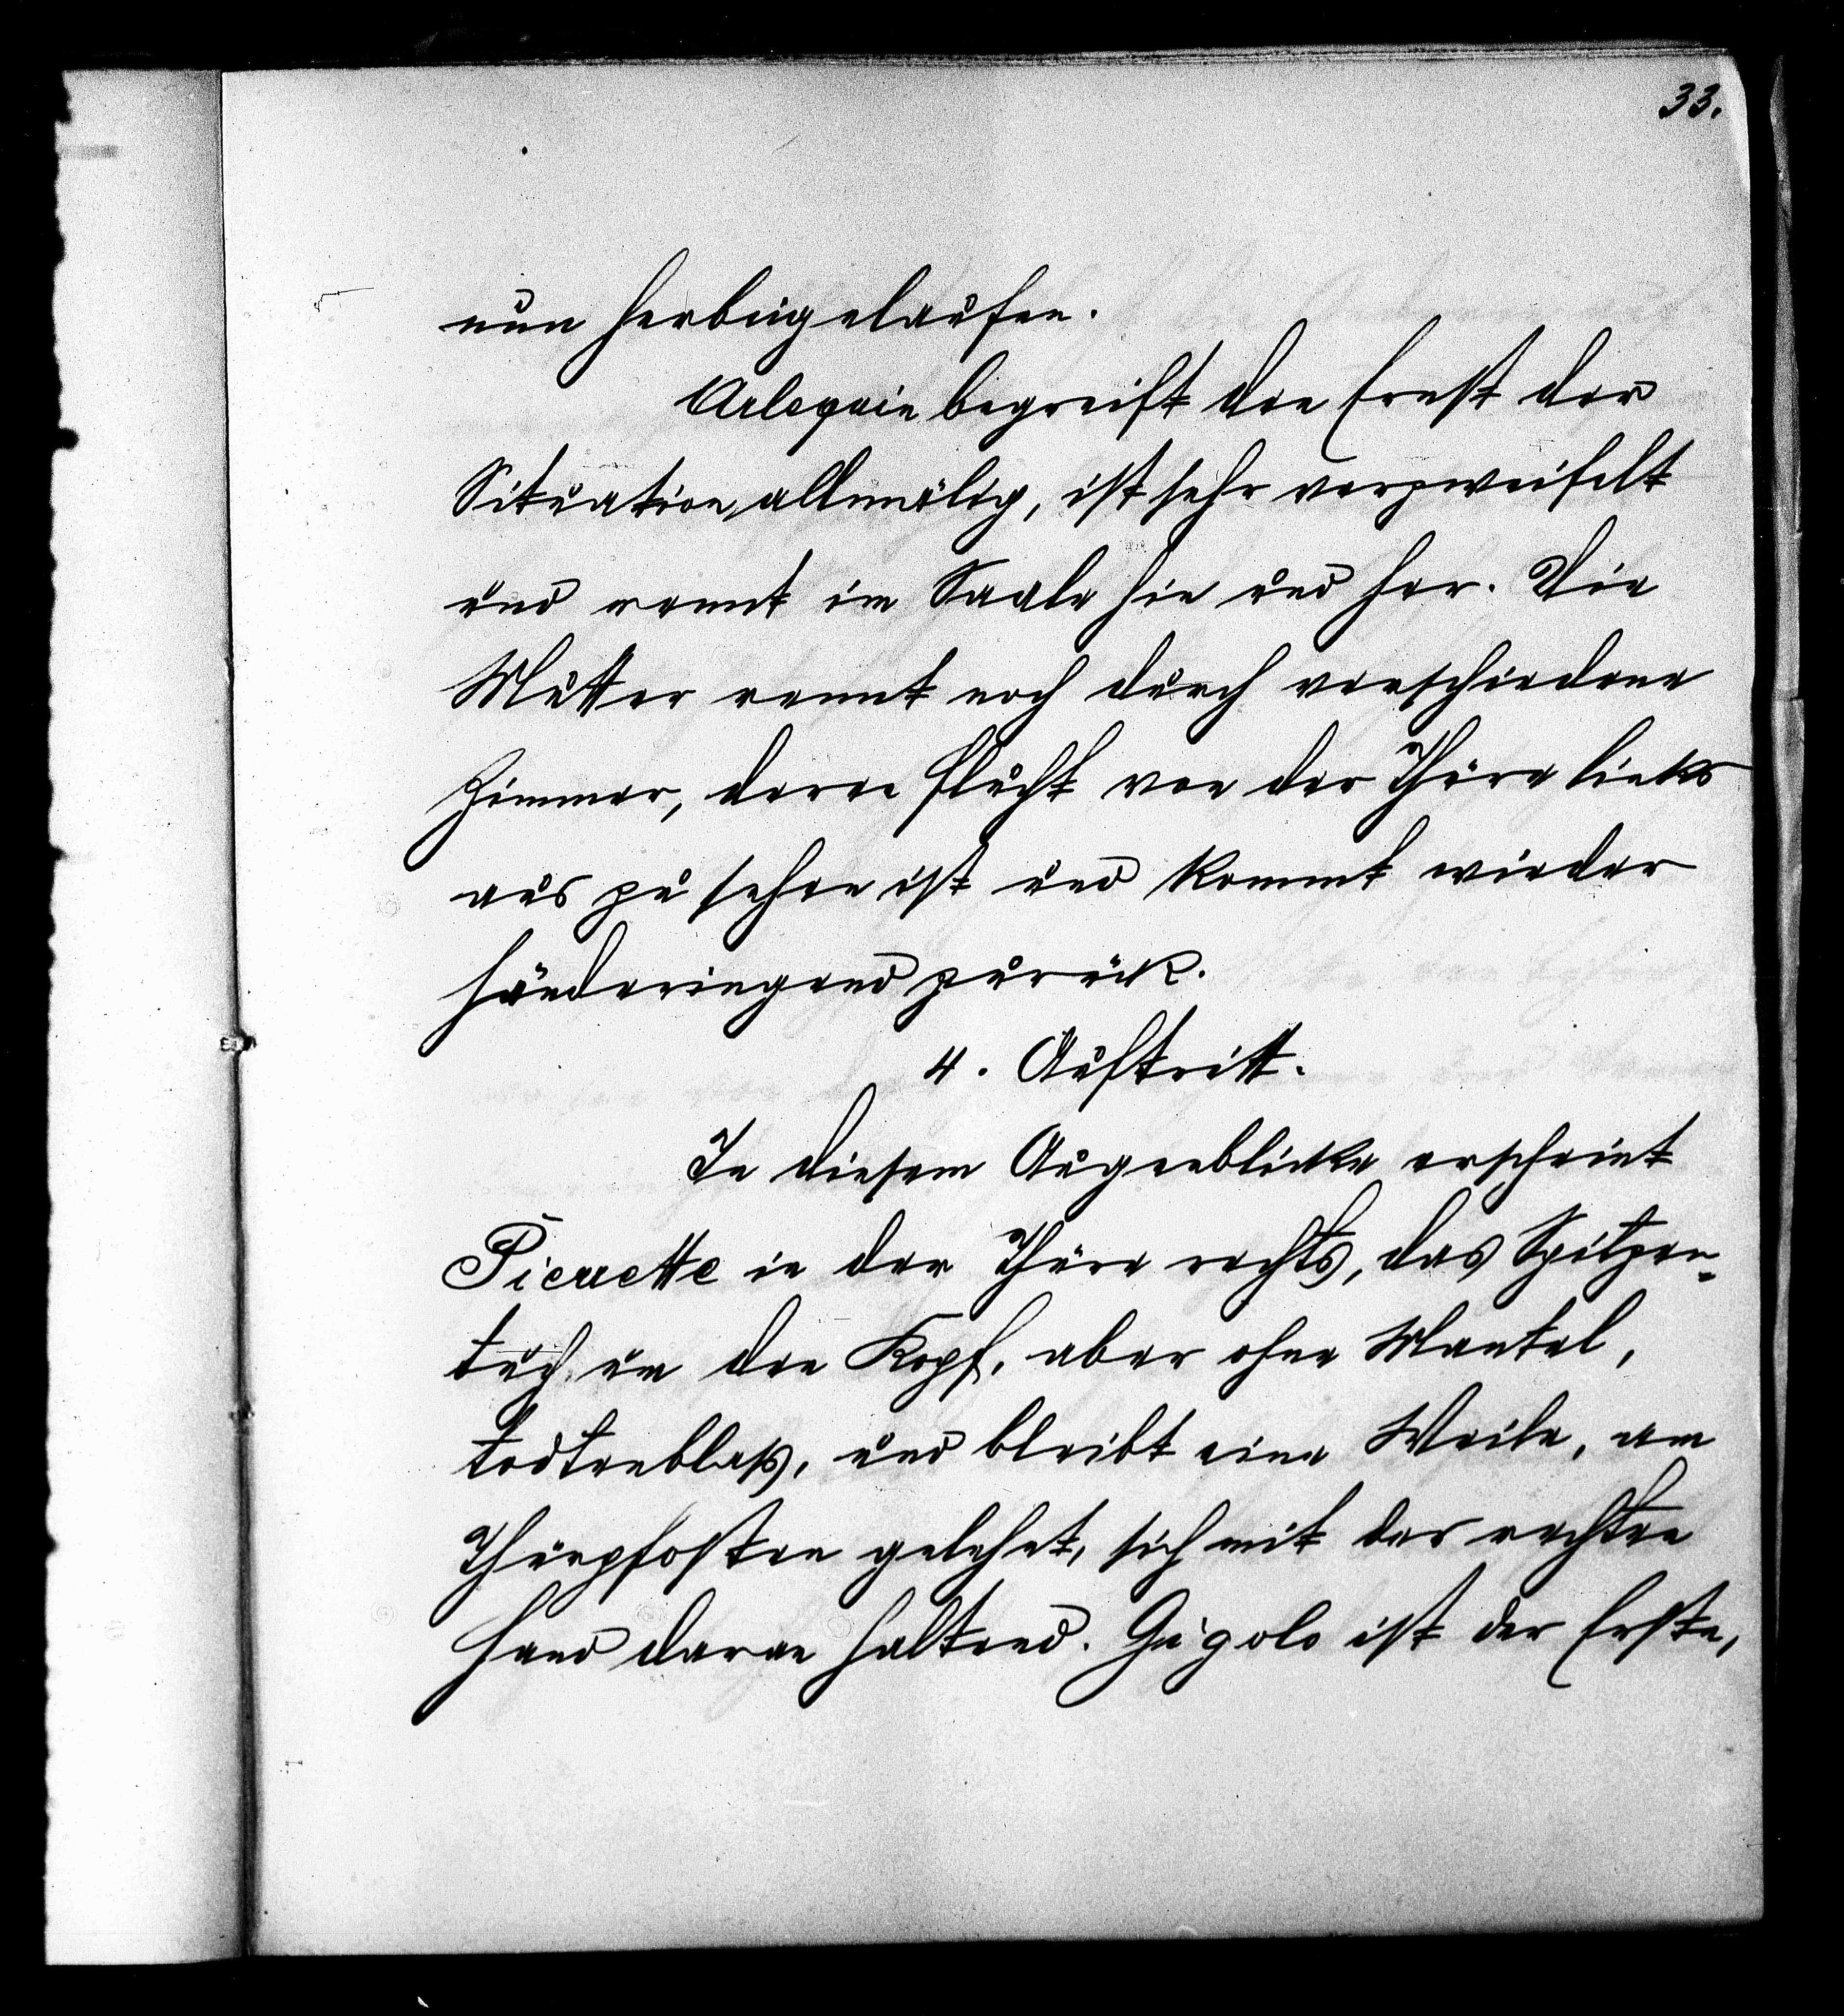 33.
nun herbeigelaufen.
Arlequin begreift den Ernst der
Situation allmälig, ist sehr verzweifelt
und rennt im Saale hin und her. Die
Mutter rennt noch durch verschiedene
Zimmer, deren Flucht von der Thüre links
aus zu sehen ist und kommt wieder
händeringend zurück.
4. Auftritt.
In diesem Augenblicke erscheint
Pierrette in der Thüre rechts, das Spitzen-
tuch um den Kopf, aber ohne Mantel,
todtenblaß, und bleibt eine Weile, am
Thürpfosten gelehnt, sich mit der rechten
Hand daran haltend. Gigolo ist der Erste,